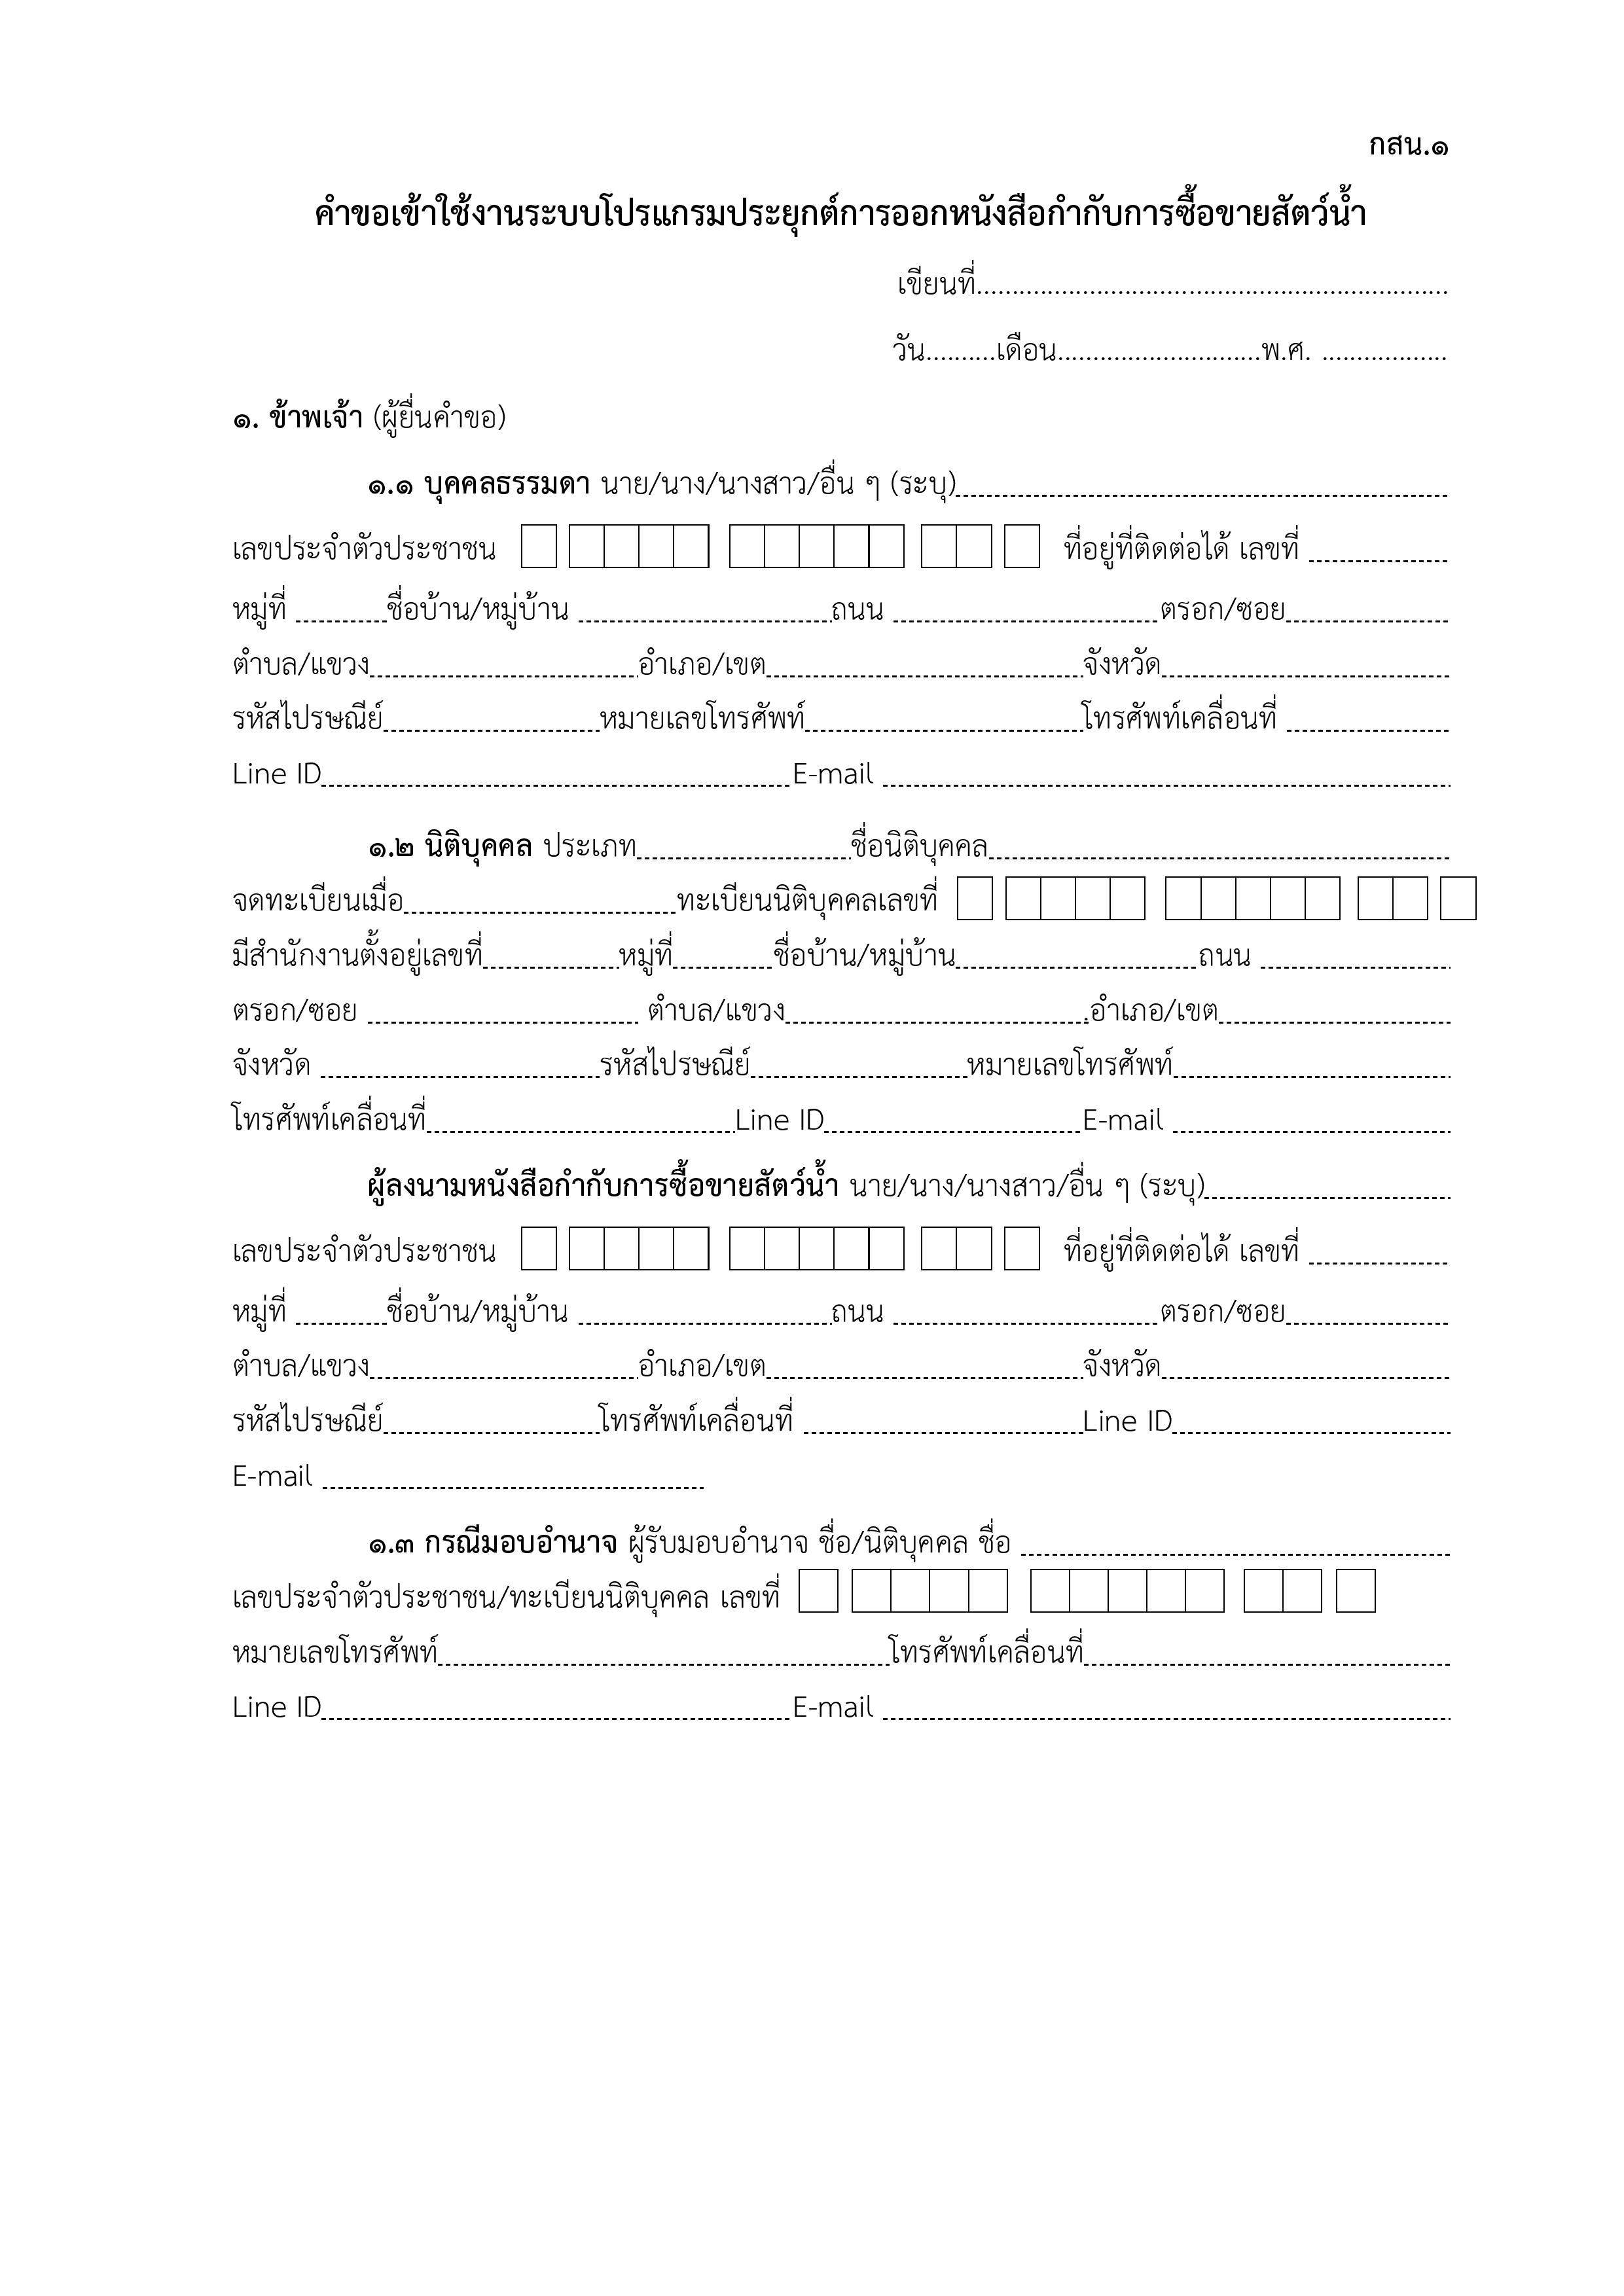 กสน.๑
คำขอเข้าใช้งานระบบโปรแกรมประยุกต์การออกหนังสือกำกับการซื้อขายสัตว์น้ำ
เขียนที่..................................................................
วัน..........เดือน............................พ.ศ. .................
๑. ข้าพเจ้า (ผู้ยื่นคำขอ)
๑.๑ บุคคลธรรมดา นาย/นาง/นางสาว/อื่น ๆ (ระบุ)
เลขประจำตัวประชาชน ที่อยู่ที่ติดต่อได้ เลขที่
หมู่ที่ ชื่อบ้าน/หมู่บ้าน ถนน ตรอก/ซอย
ตำบล/แขวง อำเภอ/เขต จังหวัด
รหัสไปรษณีย์ หมายเลขโทรศัพท์ โทรศัพท์เคลื่อนที่
Line ID E-mail
๑.๒ นิติบุคคล ประเภท ชื่อนิติบุคคล
จดทะเบียนเมื่อ ทะเบียนนิติบุคคลเลขที่
มีสำนักงานตั้งอยู่เลขที่ หมู่ที่ ชื่อบ้าน/หมู่บ้าน ถนน
ตรอก/ซอย ตำบล/แขวง .อำเภอ/เขต
จังหวัด รหัสไปรษณีย์ หมายเลขโทรศัพท์
โทรศัพท์เคลื่อนที่ Line ID E-mail
ผู้ลงนามหนังสือกำกับการซื้อขายสัตว์น้ำ นาย/นาง/นางสาว/อื่น ๆ (ระบุ)
เลขประจำตัวประชาชน ที่อยู่ที่ติดต่อได้ เลขที่
หมู่ที่ ชื่อบ้าน/หมู่บ้าน ถนน ตรอก/ซอย
ตำบล/แขวง อำเภอ/เขต จังหวัด
รหัสไปรษณีย์ โทรศัพท์เคลื่อนที่ Line ID
E-mail
๑.๓ กรณีมอบอำนาจ ผู้รับมอบอำนาจ ชื่อ/นิติบุคคล ชื่อ
เลขประจำตัวประชาชน/ทะเบียนนิติบุคคล เลขที่
หมายเลขโทรศัพท์ โทรศัพท์เคลื่อนที่
Line ID E-mail